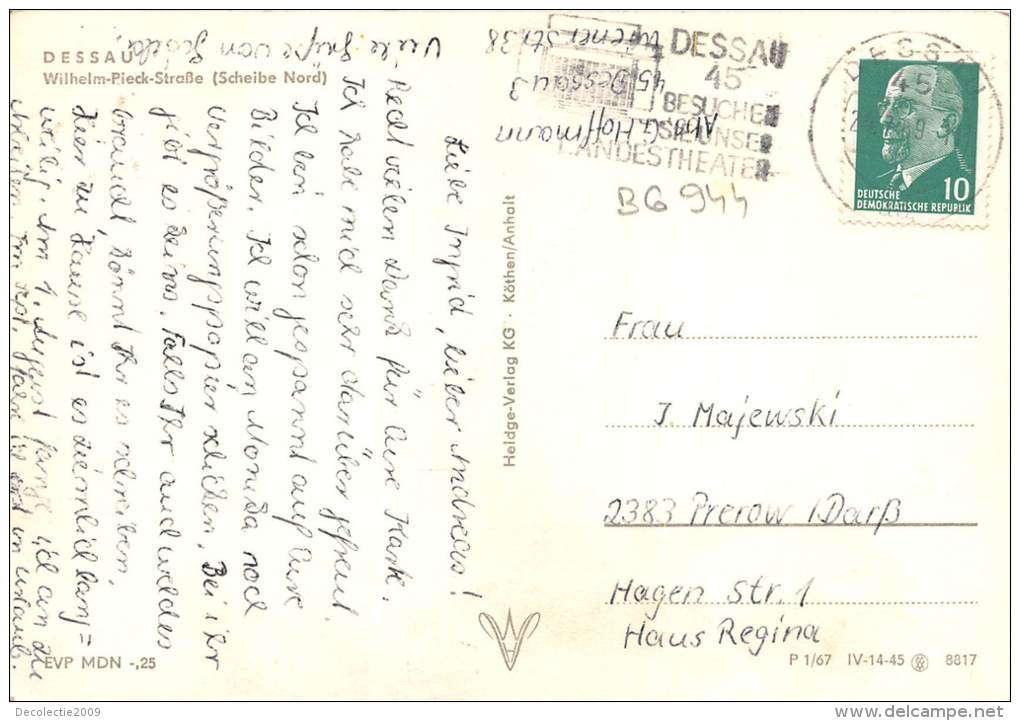 DESSAU
Wilhelm-Pieck-Straße (Scheibe Nord)
Abs. G. Hoffmann
45 Dessau 3
Wiener Str. 38
Liebe Ingrid, lieber Andreas!
Recht vielen Dank für Eure Karte.
Ich habe mich sehr darüber gefreut.
Ich bin schon gespannt auf Eure
Bilder. Ich will an Monika noch
Vergrößerungspapier schicken. Bei ihr
gibt es keins. Falls Ihr auch welches
braucht, könnt Ihr es schreiben.
Hier zu Hause ist es ziemlich lang=
weilig. Am 1. August fange ich an zu
arbeiten. Im Sept. fahre ich erst in Urlaub.
Viele Grüße von
EVP MDN -,25
Heldge-Verlag KG · Köthen/Anhalt
DESSAU
45
BESUCHEN
SIE UNSER
LANDESTHEATER
DESSAU
45
DEUTSCHE
DEMOKRATISCHE REPUBLIK
10
BG 944
Frau
I. Majewski
2383 Prerow / Darß
Hagen Str. 1
Haus Regina
P 1/67 IV-14-45 8817
Decolectie2009
delcampe.net